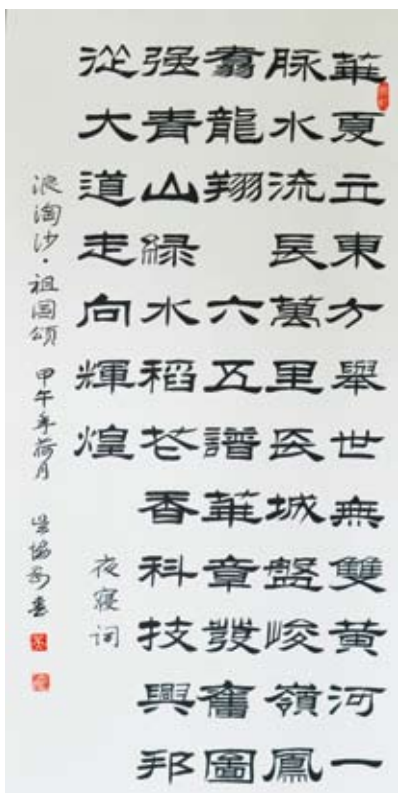 華夏立東方舉世無雙黃河一
脉水流長萬里長城盤峻嶺鳳
翥龍翔 六五譜華章發奮圖
强青山緑水稻花香科技興邦
從大道走向輝煌
夜寢词
浪淘沙·祖国頌 甲午年荷月 書